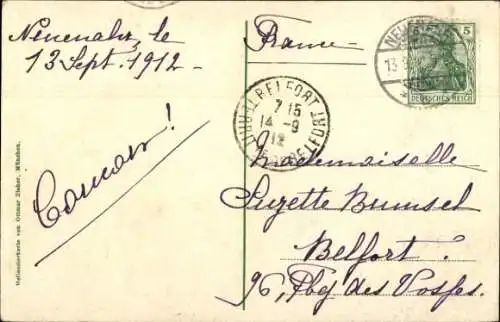 Neuenahr, le
13 Sept. 1912 -
France
NEUENAHR
13.9.
5 5
DEUTSCHES REICH
BELFORT
7 15
14 - 9
12
BELFORT
Mademoiselle
Suzette Bumsel
Belfort.
96, Fbg des Vosges.
Hollandkarte von Ottmar Zieher, München.